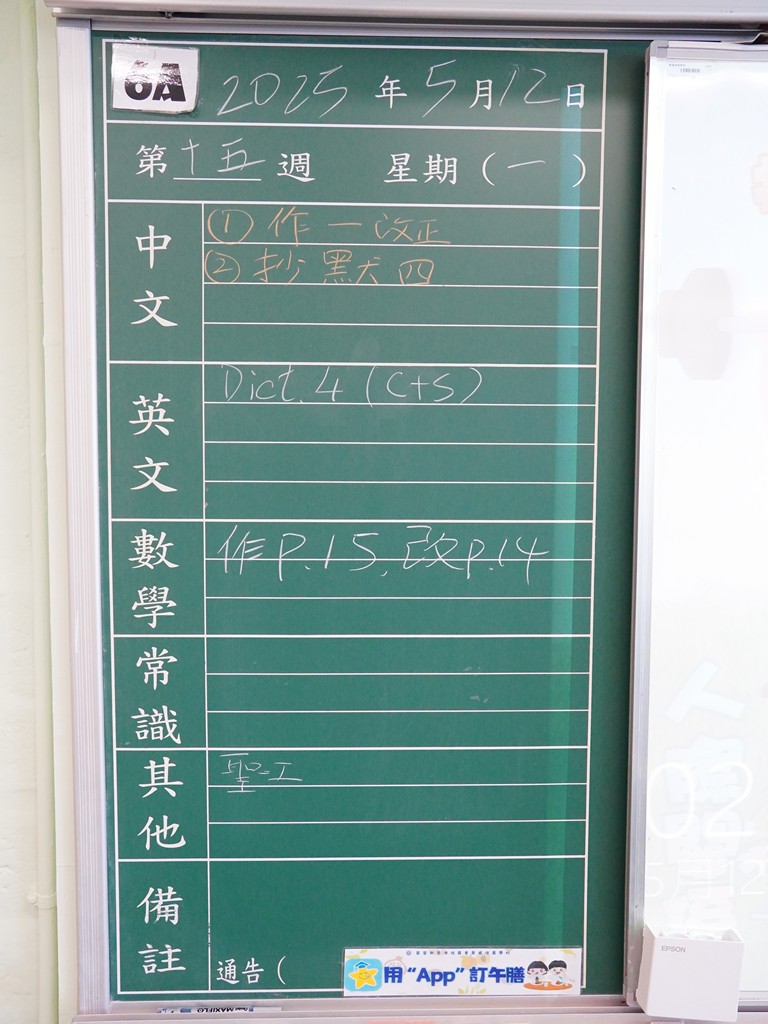 6A 2025年5月12日
第十五週 星期(一)
中文
① 作一改正
② 抄默四
英文
Dict. 4 (C+S)
數學
作P.15, 改P.14
常識
其他
聖工
備註
通告(
用“App”訂午膳
EPSON
02
5月12